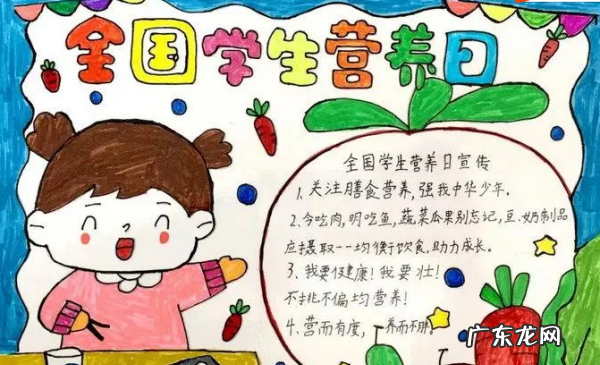 全国学生营养日
全国学生营养日宣传
1、关注膳食营养,强我中华少年。
2、今吃肉,明吃鱼,蔬菜瓜果别忘记,豆、奶制品
应摄取--均衡饮食,助力成长。
3、我要健康!我要壮!
不挑不偏均营养!
4、营而有度,养而不胖
广东龙网